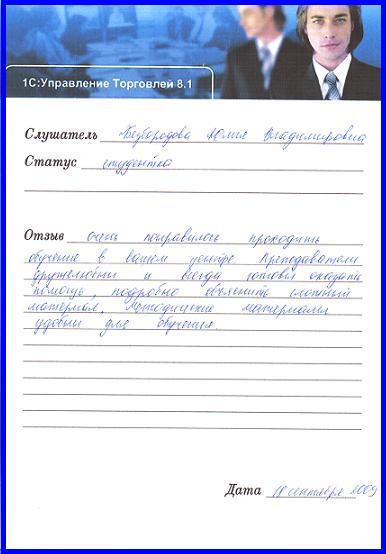 1С:Управление Торговлей 8.1
Слушатель Безбородова Юлия Владимировна
Статус студентка
Отзыв очень понравилось проходить
обучение в вашем центре. Преподаватели
дружелюбны и всегда готовы оказать
помощь, подробно объяснить сложный
материал. Методические материалы
удобны для обучения.
Дата 18 сентября 2009